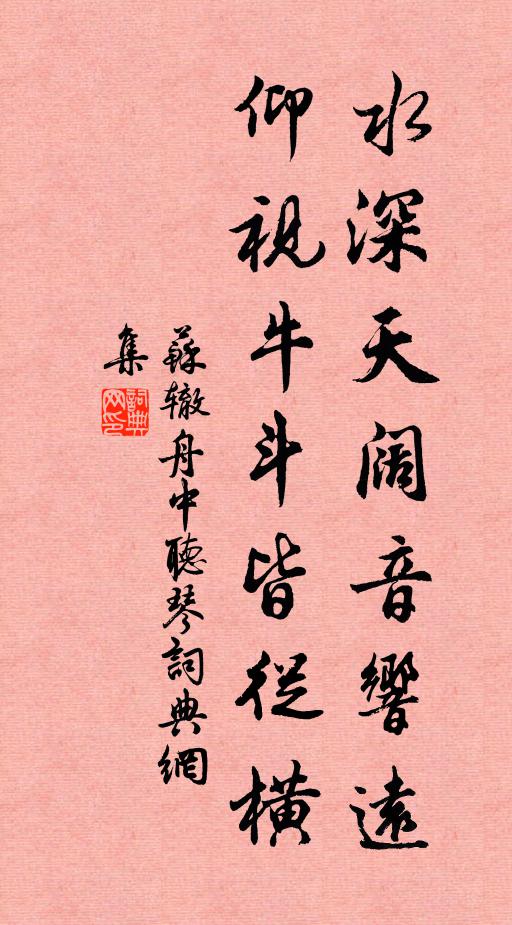 水深天闊音響遠
仰視牛斗皆從橫
蘇辙舟中聽琴詞典網
集
詞典
网印